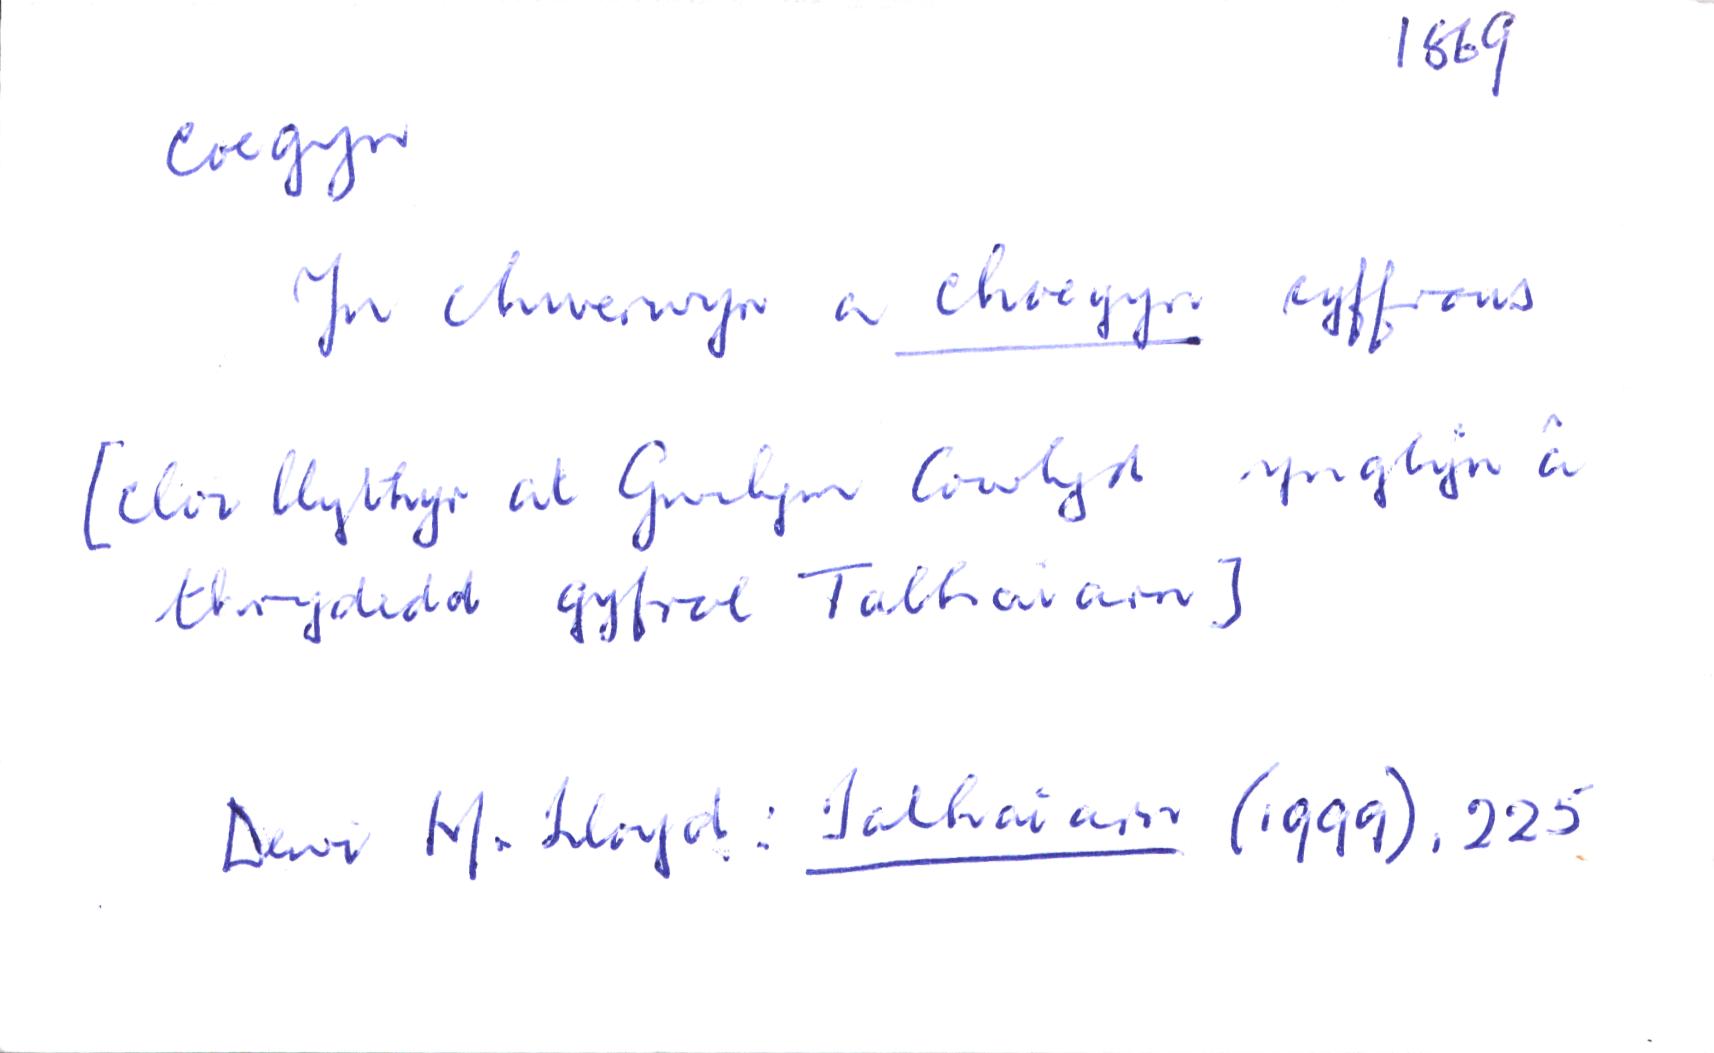 1869
coegyn
Yn chwerwyn a choegyn cyffrous
[cloi llythyr at Gwilym Cowlyd ynglŷn â
thrydedd gyfrol Talhaiarn]
Dewi M. Lloyd: Talhaiarn (1999), 225